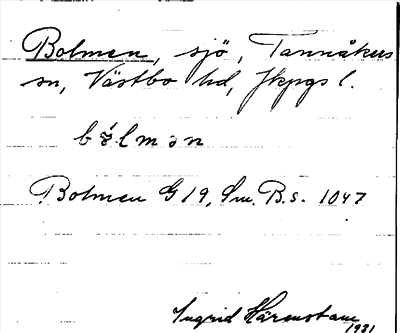 Bolmen, sjö, Tannåkers
sn, Västbo hd, Jkpgs l.
Bolmen G 19, Sm. B.s. 1047
Ingrid Härenstam
1931